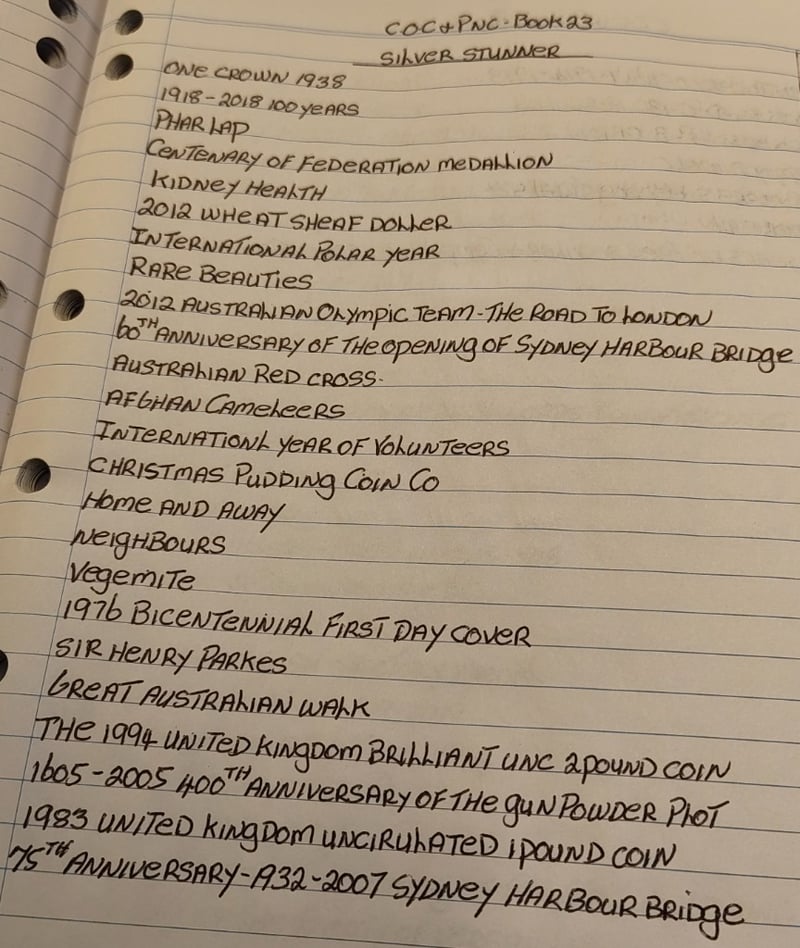 COC & PNC - Book 23
SILVER STUNNER
ONE CROWN 1938
1918-2018 100 YEARS
PHAR LAP
CENTENARY OF FEDERATION MEDALLION
KIDNEY HEALTH
2012 WHEAT SHEAF DOLLER
INTERNATIONAL POLAR YEAR
RARE BEAUTIES
2012 AUSTRALIAN OLYMPIC TEAM - THE ROAD TO LONDON
60TH ANNIVERSARY OF THE OPENING OF SYDNEY HARBOUR BRIDGE
AUSTRALIAN RED CROSS.
AFGHAN CAMELEERS
INTERNATIONL YEAR OF VOLUNTEERS
CHRISTMAS PUDDING COIN CO
HOME AND AWAY
NEIGHBOURS
VEGEMITE
1976 BICENTENNIAL FIRST DAY COVER
SIR HENRY PARKES
GREAT AUSTRALIAN WALK
THE 1994 UNITED KINGDOM BRILLIANT UNC 2 POUND COIN
1605-2005 400TH ANNIVERSARY OF THE GUN POWDER PLOT
1983 UNITED KINGDOM UNCIRULATED 1 POUND COIN
75TH ANNIVERSARY-1932-2007 SYDNEY HARBOUR BRIDGE